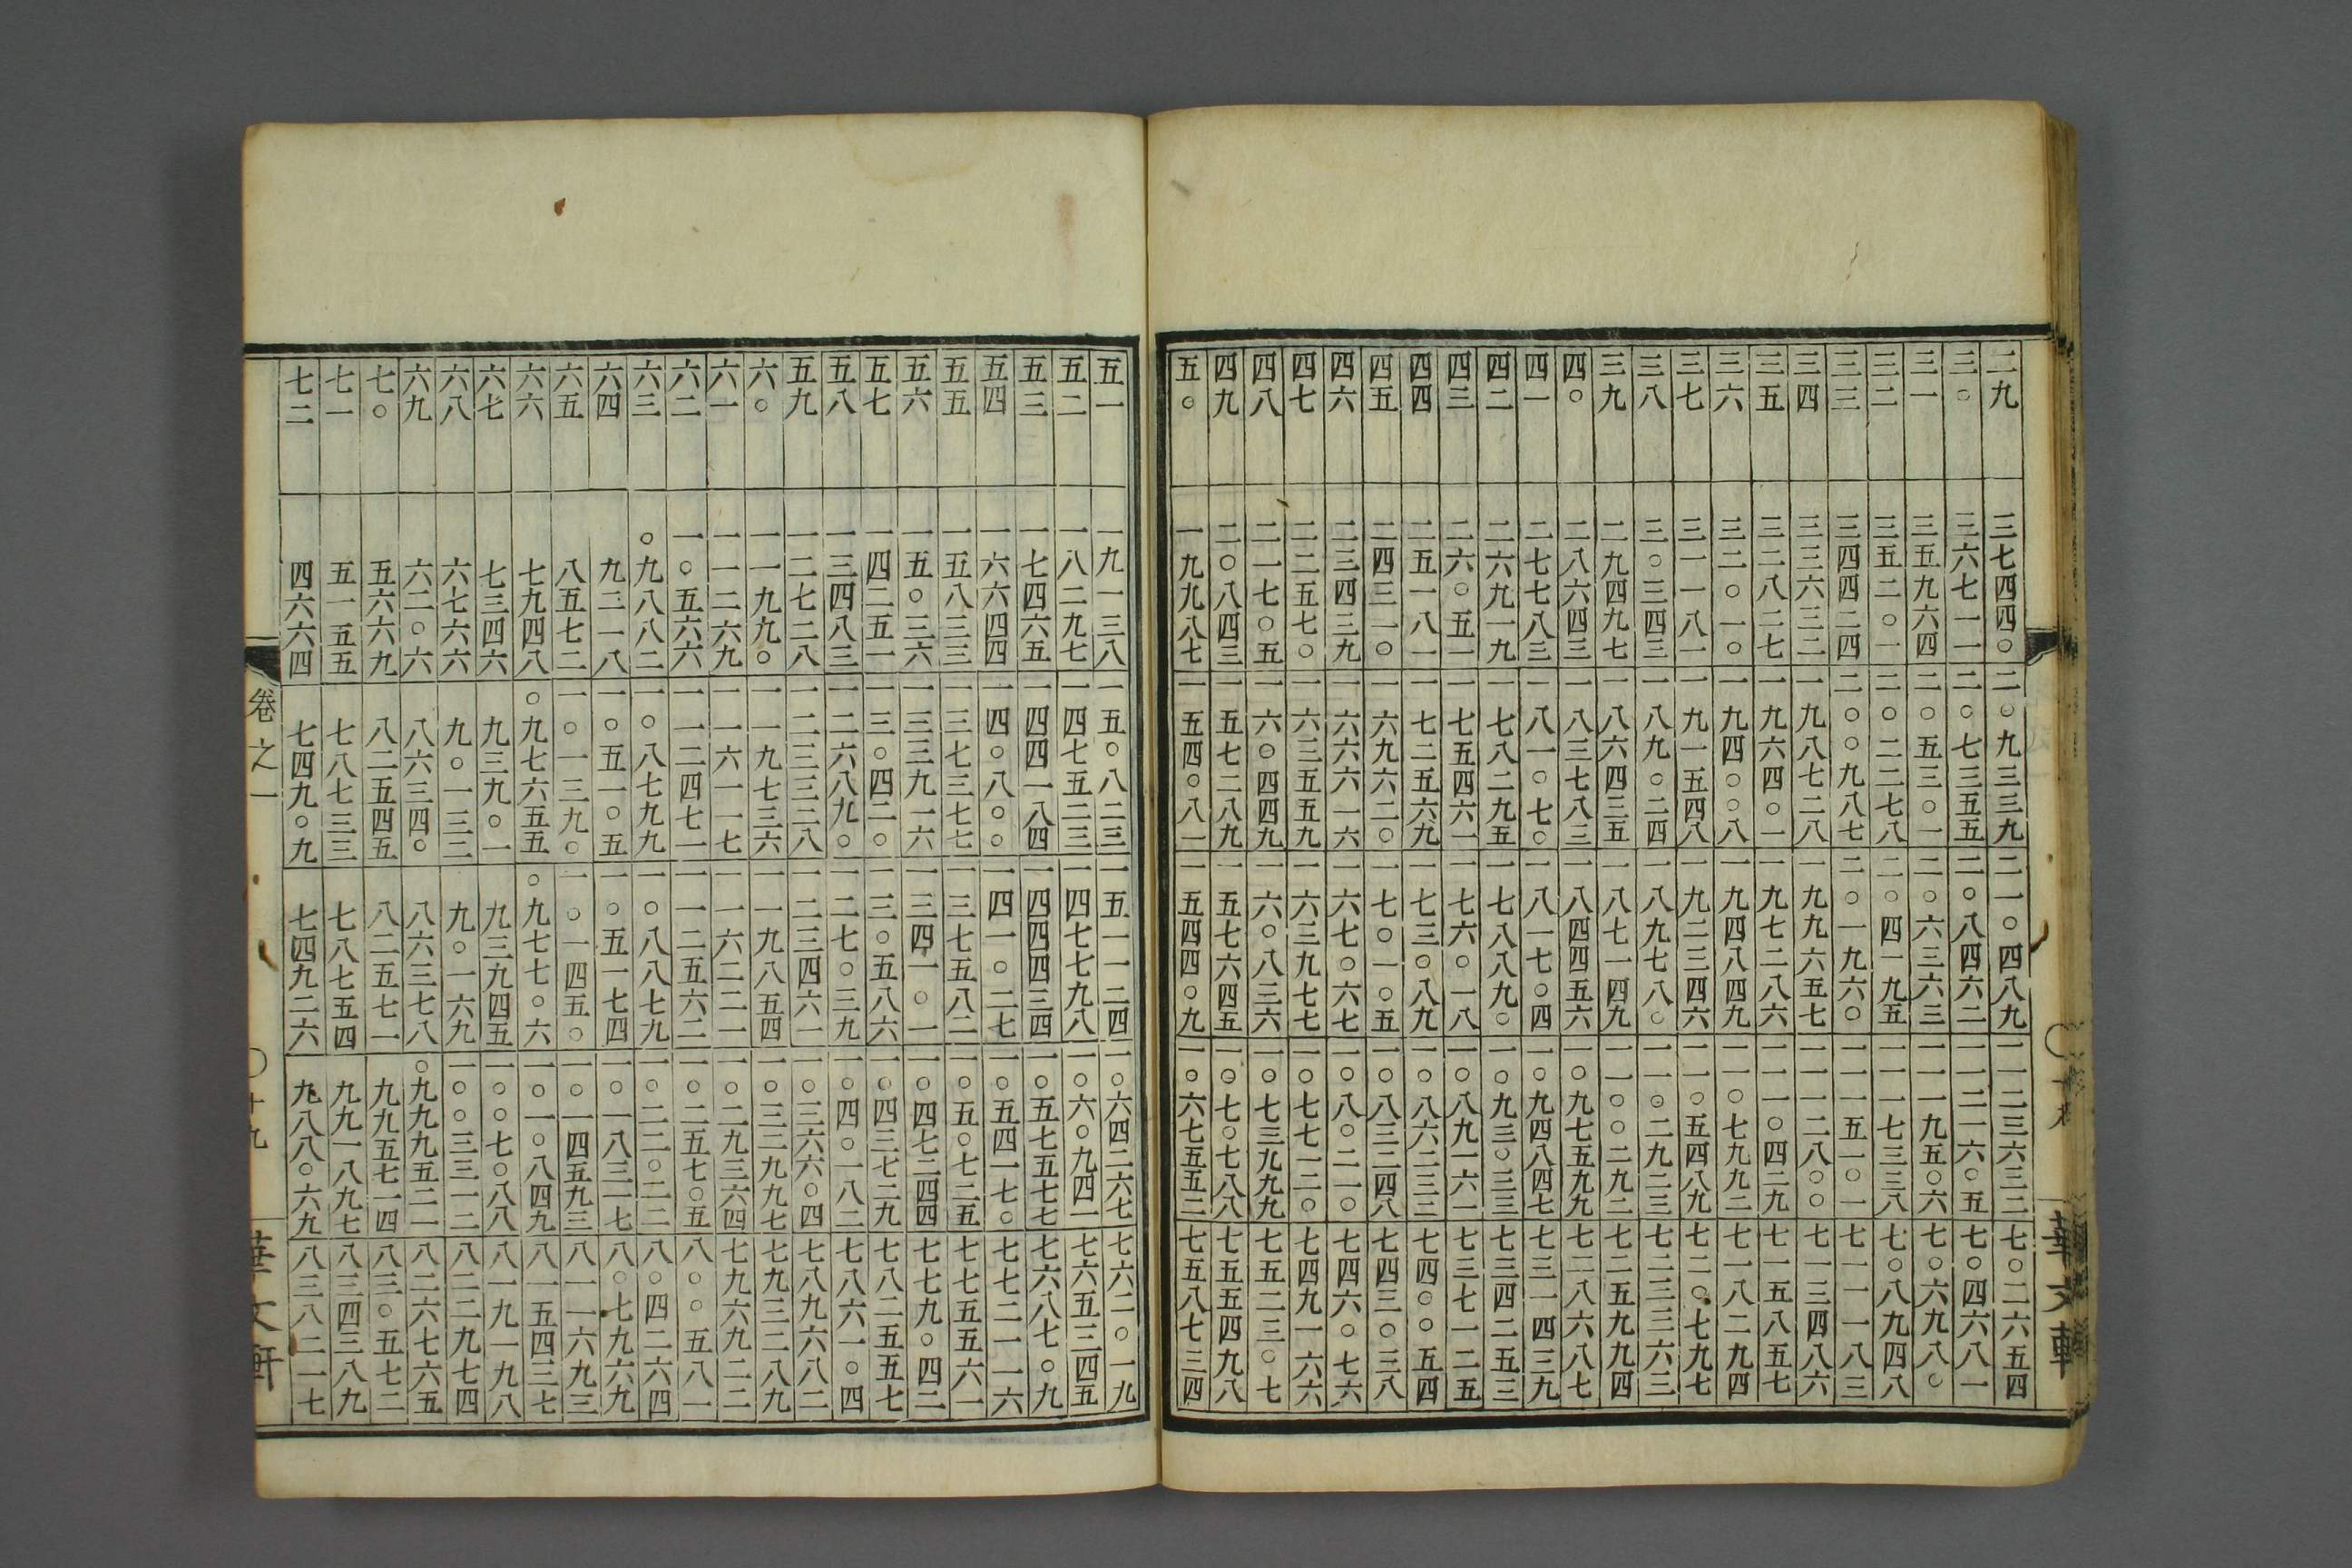 二九 三七四四〇 二〇九三三九 二一〇四八九 一一二三六三二 七〇二六五四
三〇 三六七一一 二〇七三五五 二〇八四六二 一一二一六〇五 七〇四六八一
三一 三五九六四 二〇五三〇一 二〇六三六三 一一一九五〇六 七〇六九八〇
三二 三五二〇一 二〇二二七八 二〇四一九五 一一一七三三八 七〇八九四八
三三 三四四二四 二〇〇九八七 二〇一九六〇 一一一五一〇一 七一一一八三
三四 三三六三二 一九八七二八 一九九六五七 一一一二八〇〇 七一三四八六
三五 三二八二七 一九六四〇一 一九七二八六 一一一〇四二九 七一五八五七
三六 三二〇一〇 一九四〇〇八 一九四八四九 一一〇七九九二 七一八二九四
三七 三一一八一 一九一五四八 一九二三四六 一一〇五四八九 七二〇七九七
三八 三〇三四三 一八九〇二四 一八九七八〇 一一〇二九二三 七二三三六三
三九 二九四九七 一八六四三五 一八七一四九 一一〇〇二九二 七二五九九四
四〇 二八六四三 一八三七八三 一八四四五六 一〇九七五九九 七二八六八七
四一 二七七八三 一八一〇七〇 一八一七〇四 一〇九四八四七 七三一四三九
四二 二六九一九 一七八二九五 一七八八九〇 一〇九三〇三三 七三四二五三
四三 二六〇五一 一七五四六一 一七六〇一八 一〇八九一六一 七三七一二五
四四 二五一八一 一七二五六九 一七三〇八九 一〇八六二三三 七四〇〇五四
四五 二四三一〇 一六九六二〇 一七〇一〇五 一〇八三二四八 七四三〇三八
四六 二三四三九 一六六六一六 一六七〇六七 一〇八〇二一〇 七四六〇七六
四七 二二五七〇 一六三五五九 一六三九七七 一〇七七一二〇 七四九一六六
四八 二一七〇五 一六〇四四九 一六〇八三六 一〇七三九九九 七五二三〇七
四九 二〇八四三 一五七二八九 一五七六四五 一〇七〇七八八 七五五四九八
五〇 一九九八七 一五四〇八一 一五四四〇九 一〇六七五五二 七五八七三四
五一 一九一三八 一五〇八二三 一五一一二四 一〇六四二六七 七六二〇一九
五二 一八二九七 一四七五二三 一四七七九八 一〇六〇九四一 七六五三四五
五三 一七四六五 一四四一八四 一四四四三四 一〇五七五七七 七六八七〇九
五四 一六六四四 一四〇八〇〇 一四一〇二七 一〇五四一七〇 七七二一一六
五五 一五八三三 一三七三七七 一三七五八二 一〇五〇七二五 七七五五六一
五六 一五〇三六 一三三九一六 一三四一〇一 一〇四七二四四 七七九〇四二
五七 一四二五一 一三〇四二〇 一三〇五八六 一〇四三七二九 七八二五五七
五八 一三四八三 一二六八九〇 一二七〇三九 一〇四〇一八二 七八六一〇四
五九 一二七二八 一二三三二八 一二三四六一 一〇三六六〇四 七八九六八二
六〇 一一九九〇 一一九七三六 一一九八五四 一〇三二九九七 七九三二八九
六一 一一二六九 一一六一一七 一一六二二一 一〇二九三六四 七九六九二二
六二 一〇五六六 一一二四七一 一一二五六二 一〇二五七〇五 八〇〇五八一
六三 〇九八八二 一〇八七九九 一〇八八七九 一〇二二〇二二 八〇四二六四
六四 九二一八 一〇五一〇五 一〇五一七四 一〇一八三一七 八〇七九六九
六五 八五七二 一〇一三九〇 一〇一四五〇 一〇一四五九三 八一一六九三
六六 七九四八 〇九七六五五 〇九七七〇六 一〇一〇八四九 八一五四三七
六七 七三四六 九三九〇一 九三九四五 一〇〇七〇八八 八一九一九八
六八 六七六六 九〇一三二 九〇一六九 一〇〇三三一二 八二二九七四
六九 六二〇六 八六三四〇 八六三七八 〇九九九五二一 八二六七六五
七〇 五六六九 八二五四五 八二五七一 九九五七一四 八三〇五七二
七一 五一五五 七八七三三 七八七五四 九九一八九七 八三四三八九
七二 四六六四 七四九〇九 七四九二六 九八八〇六九 八三八二一七
卷之一 十九 華文軒